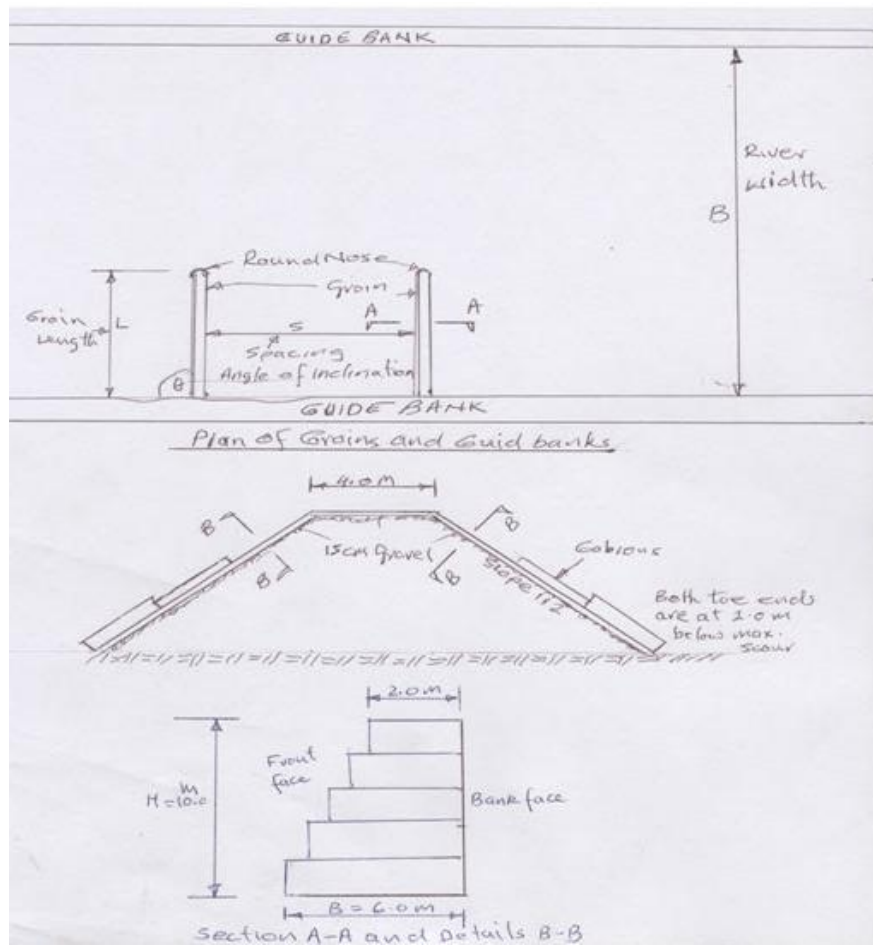 GUIDE BANK
River
Width
B
Round Nose
Groin
A A
Groin
Length
L
S
Spacing
θ
Angle of Inclination
GUIDE BANK
Plan of Groins and Guid banks
4.0M
B B
15cm Gravel
B B
Slope 1:2
Gobions
Both toe ends
are at 1.0m
below max.
Scour
2.0m
Front
face
H = 10.0 m
Bank face
B = 6.0m
Section A-A and Details B-B